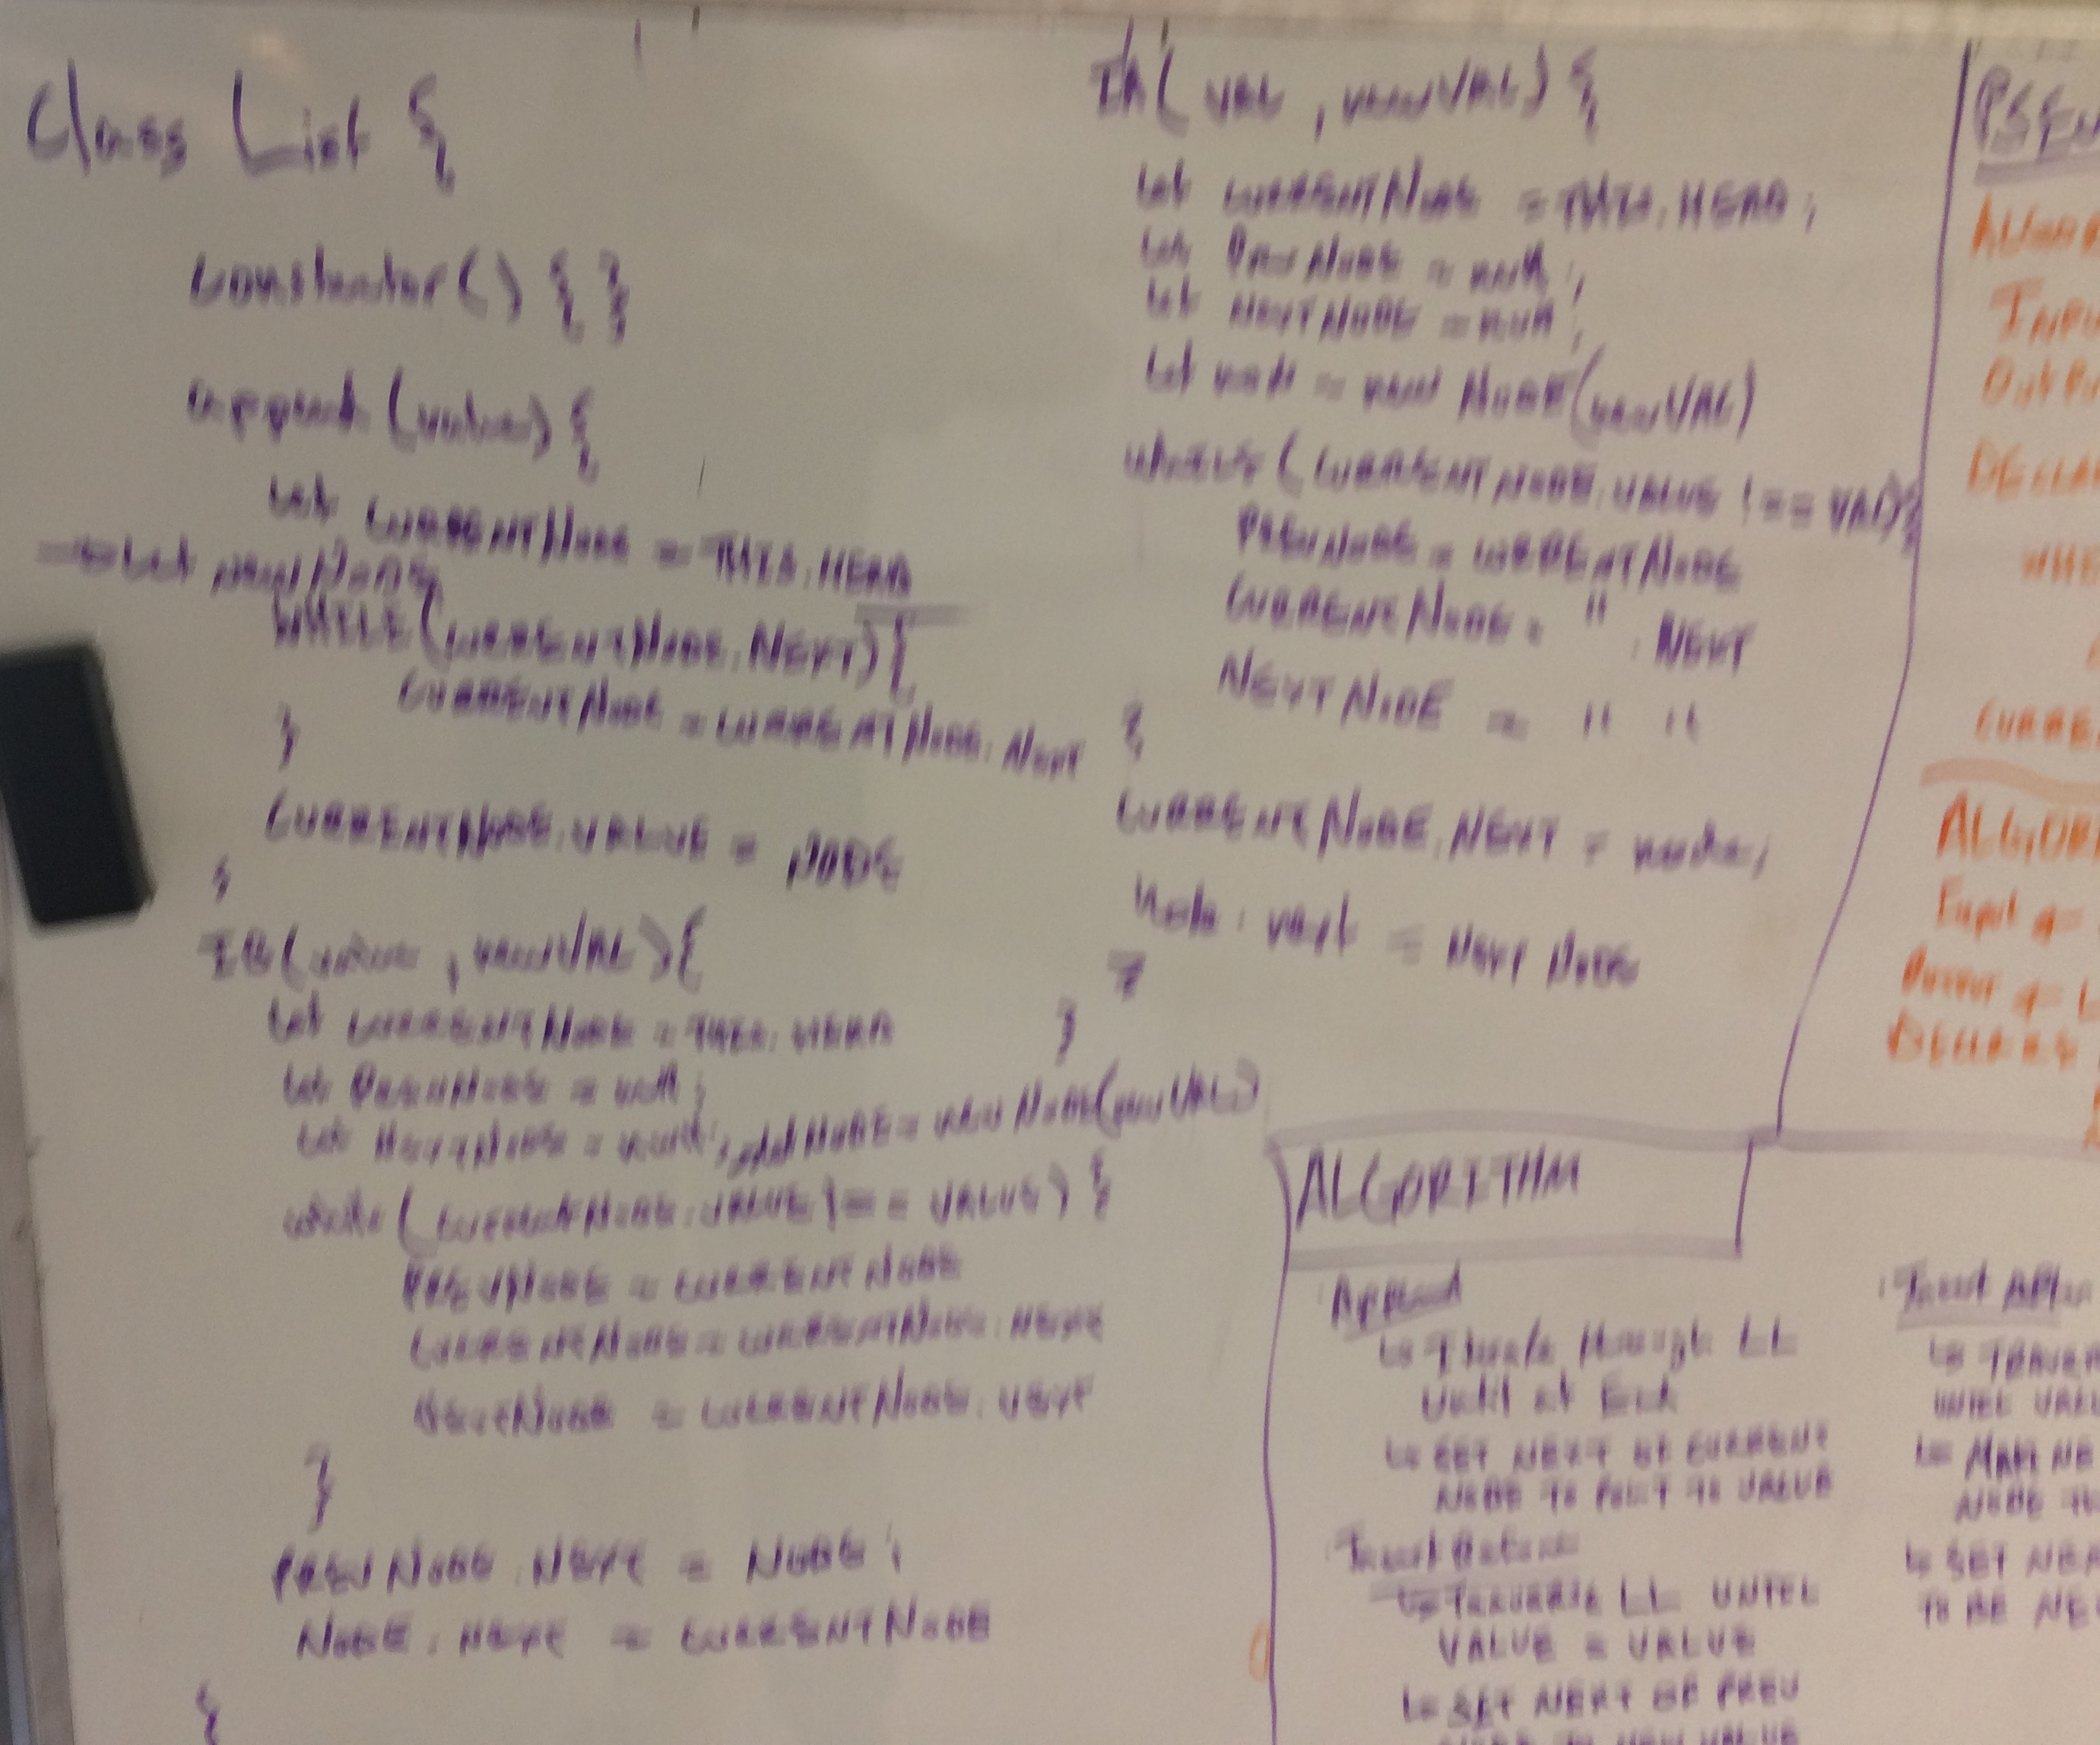 Class List {
constructor() { }
append (value) {
let CURRENTNODE = THIS.HEAD
→ let newNODE
WHILE (CURRENTNODE.NEXT) {
CURRENTNODE = CURRENTNODE.NEXT
}
CURRENTNODE.VALUE = NODE
}
IB(value, newVAL) {
let CURRENTNODE = THIS.HEAD
let PREVNODE = null;
let NEXTNODE = null; NODE = new NODE(newVAL)
while (CURRENTNODE.VALUE !== VALUE) {
PREVNODE = CURRENTNODE
CURRENTNODE = CURRENTNODE.NEXT
NEXTNODE = CURRENTNODE.NEXT
}
PREVNODE.NEXT = NODE;
NODE.NEXT = CURRENTNODE
}
IA( VAL, newVAL) {
let CURRENTNODE = THIS.HEAD;
let PrevNODE = null;
let NEXTNODE = null;
let node = new NODE(newVAL)
WHILE (CURRENTNODE.VALUE !== VAL) {
PREVNODE = CURRENTNODE
CURRENTNODE = " . NEXT
NEXTNODE = " "
}
CURRENTNODE.NEXT = node;
node.next = NEXT NODE
}
}
ALGORITHM
Append
↳ Iterate through LL
Until at End
↳ SET NEXT OF CURRENT
NODE TO POINT TO VALUE
Insert Before
↳ TRAVERSE LL UNTIL
VALUE = VALUE
↳ SET NEXT OF PREV
NODE TO NEW VALUE
Insert After
↳ TRAVER
UNTIL VAL
NODE TO
↳ SET NE
TO BE NE
PSEU
ALGOR
INPU
OUTPU
DECLA
WHI
CURRE
ALGOR
Input ←
Output ← L
DECLARE